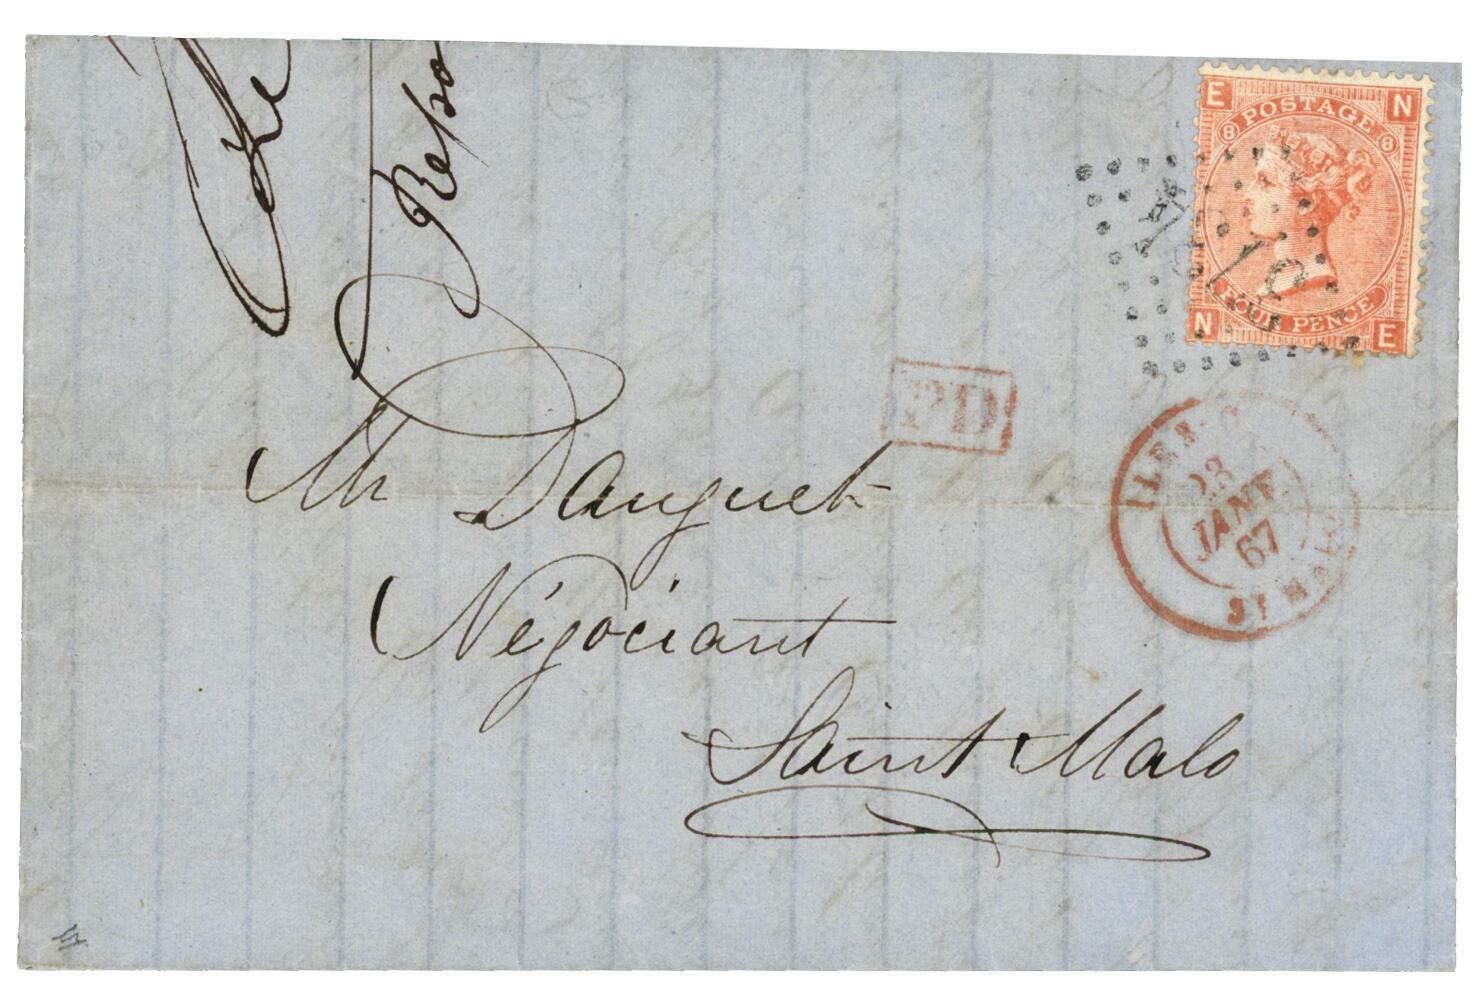 Répo
E N
8 POSTAGE 8
FOUR PENCE
N E
PD
ILES-C
23
JANV.
67
ST MALO
Mr Dauguet
Négociant
Saint Malo